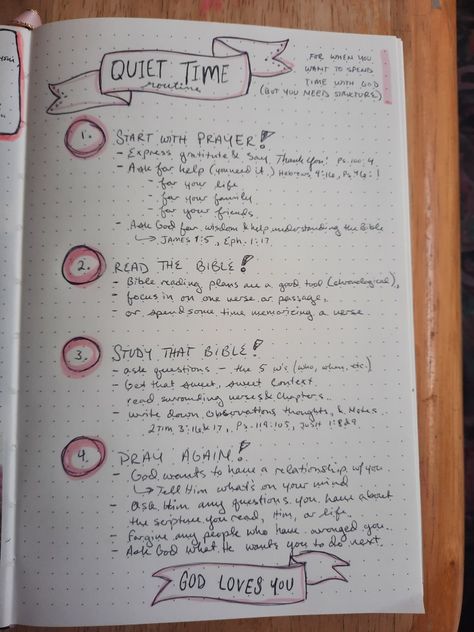 QUIET TIME
routine
FOR WHEN YOU
WANT TO SPEND
TIME WITH GOD
(BUT YOU NEED STRUCTURE)
1. START WITH PRAYER!
- Express gratitude & say Thank You! Ps. 100:4
- Ask for help (you need it.) Hebrews 4:16, Ps. 46:1
- for your life
- for your family
- for your friends
- Ask God for wisdom & help understanding the Bible
↳ JAMES 1:5, Eph. 1:17
2. READ THE BIBLE!
- Bible reading plans are a good tool (chronological),
- focus in on one verse or passage,
- or spend some time memorizing a verse
3. STUDY THAT BIBLE!
- ask questions - the 5 w's (who, when, etc.)
- Get that sweet, sweet context.
read surrounding verses & chapters.
- write down observations, thoughts, & notes
2 Tim 3:16&17, Ps. 119:105, Josh 1:8&9
4. PRAY AGAIN!
- God wants to have a relationship w/you
↳ Tell Him what's on your mind
- ask Him any questions you have about
the scripture you read, Him, or life.
- forgive any people who have wronged you.
- Ask God what He wants you to do next.
GOD LOVES YOU